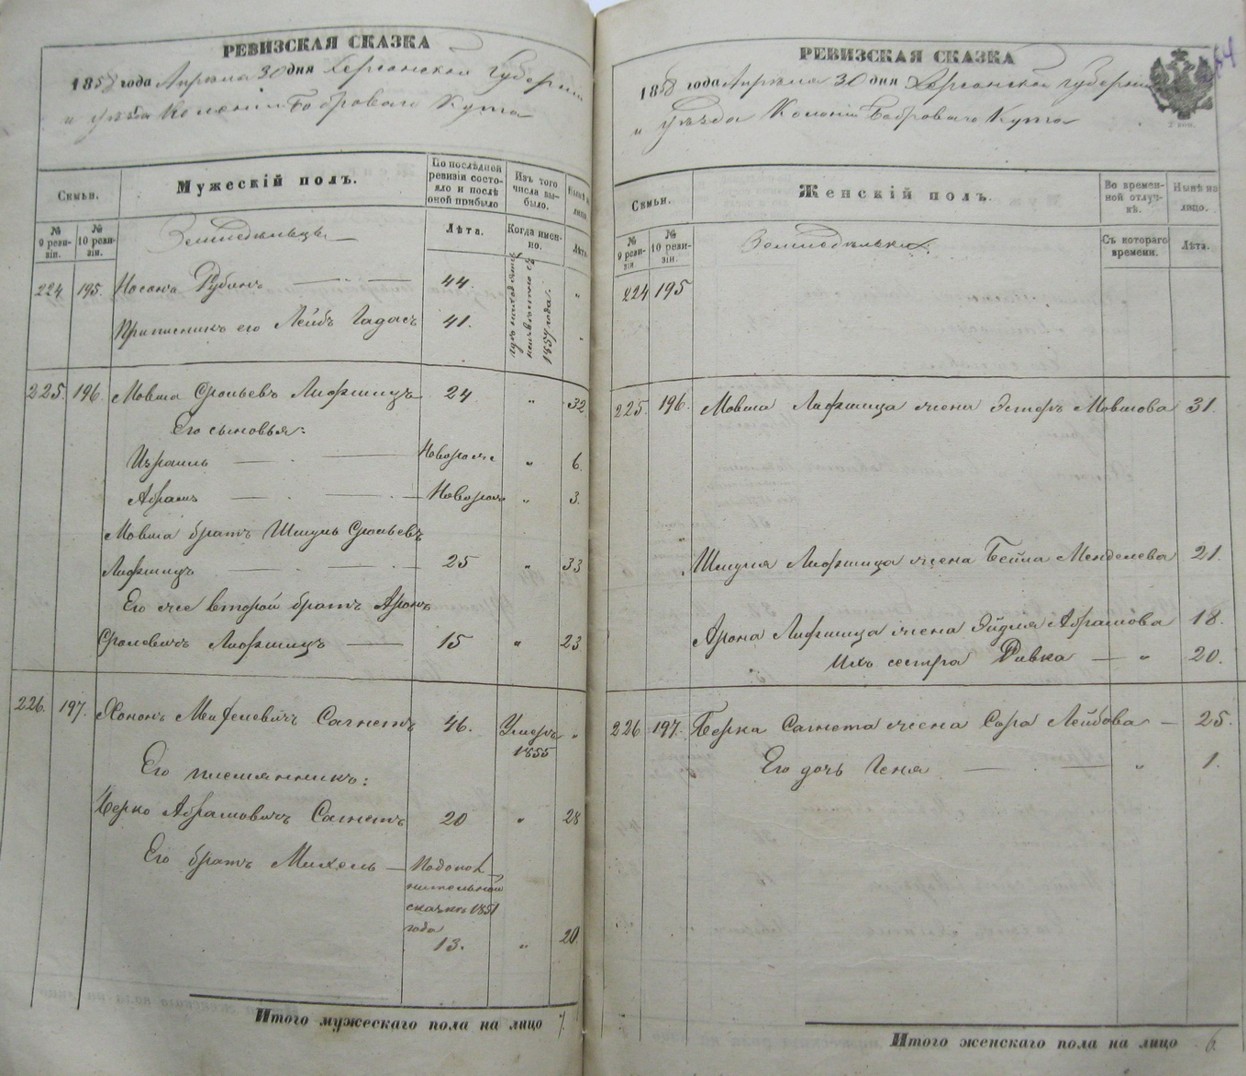 РЕВИЗСКАЯ СКАЗКА
1858 года Апрѣля 30 дня Херсонской губерніи
и уѣзда Колоніи Боброваго Кута
Семьи.
Мужескій полъ.
По послѣдней ревизіи состояло и послѣ оной прибыло
Изъ того числа выбыло.
№ 9 ревизіи.
№ 10 ревизіи.
Земледѣльцы
Лѣта.
Когда именно.
Лѣта.
224. 195. Носонъ Рубинъ 44. "
Приписникъ его Лейбъ Гадасъ 41. "
1857 года.
225. 196. Мовша Срольевъ Лифшицъ 24 " 32
Его сыновья:
Израиль Новорож " 6.
Абрамъ Новорож " 3.
Мовша братъ Шмуль Срольевъ
Лифшицъ 25 " 33
Его же второй братъ Аронъ
Сролевичъ Лифшицъ 15 " 23
226. 197. Хононъ Сагнетъ 46. Умеръ 1855 "
Его племянникъ:
Берко Абрамовичъ Сагнетъ 20 " 28
Его братъ Михель
сказкѣ 1851 года
13. " 20.
Итого мужескаго пола на лицо 7.
РЕВИЗСКАЯ СКАЗКА
1858 года Апрѣля 30 дня Херсонской губерніи
и уѣзда Колоніи Боброваго Кута
Семьи.
Женскій полъ.
Во временной отлучкѣ.
Нынѣ на лицо.
№ 9 ревизіи.
№ 10 ревизіи.
Земледѣлки
Съ котораго времени.
Лѣта.
224 195
225. 196. Мовша Лифшица жена Эстеръ Мовшова 31.
Шмуля Лифшица жена Бейла Менделева 21.
Арона Лифшица жена Эйдля Абрамова 18.
Ихъ сестра Ривка " 20.
226 197. Берка Сагнета жена Сора Лейбова 25.
Его дочь Геня " 1.
Итого женскаго пола на лицо 6